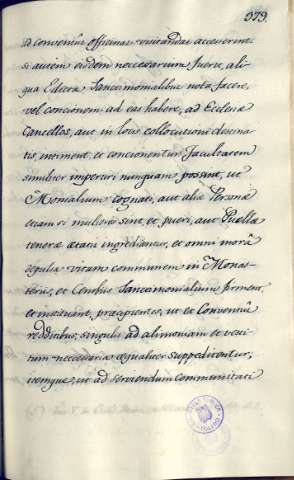 379.
ad conventus officinas visitandas accesserint
si autem eisdem neccessarium fuerit, ali
qua Edicta Sanctimonialibus nota facere,
vel concionem ad eas habere, ad Ecclesiæ
Cancellos, aut in locis collocutioni destina
tis, intiment, et concionentur. Facultatem
similiter impertiri nunquam possint, ut
Monialium cognati, aut aliæ Personæ
etiam si mulieres sint, et pueri, aut Puellæ
teneræ ætatis ingrediantur, et omni morâ
depulsa vitam communem in Monas-
teriis, et Cœtibus Sanctimonialium firment,
et instituant, præcipientes, ut ex Conventus
redditibus, singulis ad alimoniam et vesti
tum neccessaria æqualiter suppeditentur,
itemque, ut ad serviendum communitati